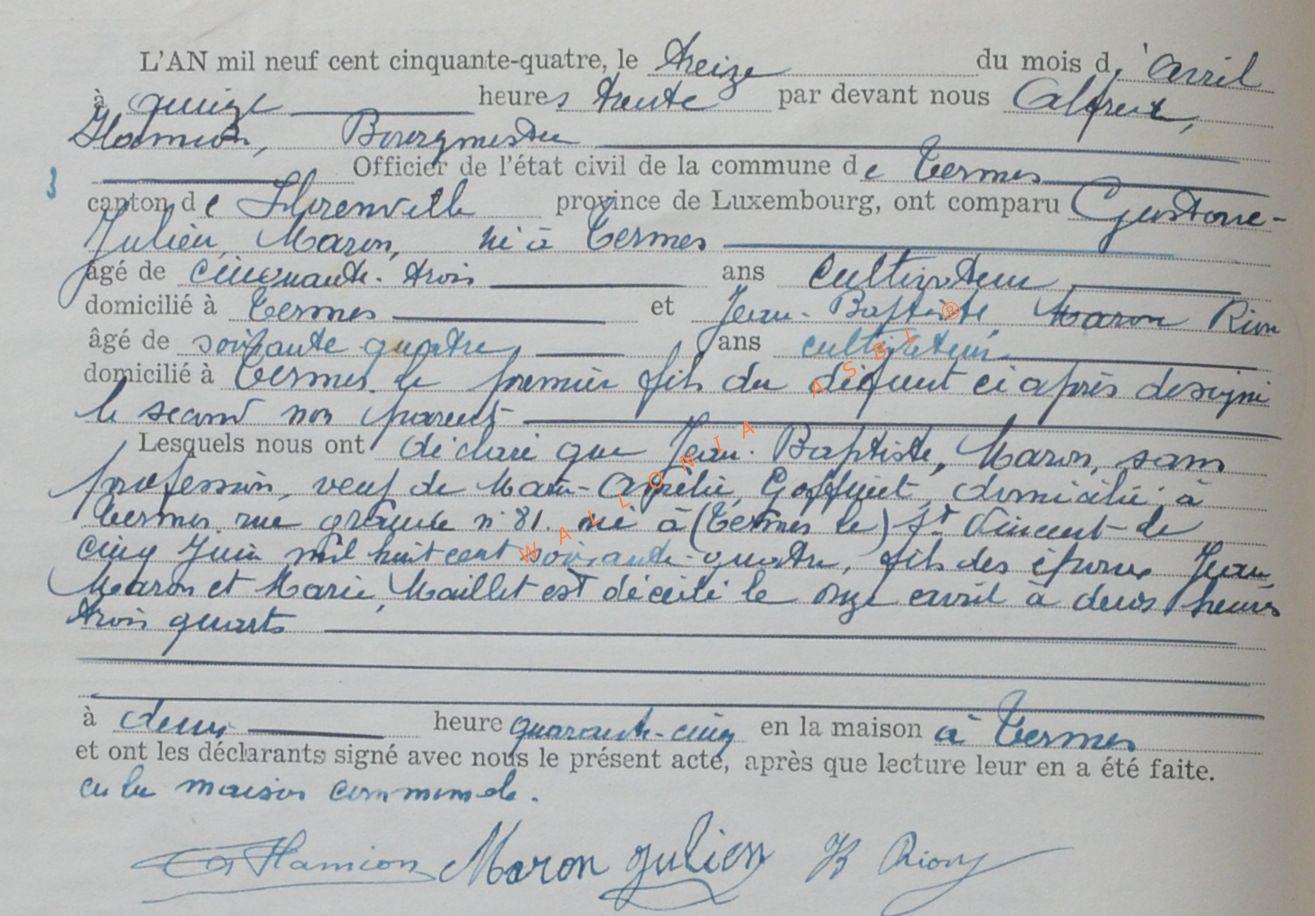 L'AN mil neuf cent cinquante-quatre, le treize du mois d'avril
à quinze heures trente par devant nous Alfred,
Hamion, Bourgmestre
Officier de l'état civil de la commune de Termes
3
canton de Florenville province de Luxembourg, ont comparu Gustave-
Julien, Maron, né à Termes
âgé de cinquante-trois ans cultivateur
domicilié à Termes et Jean-Baptiste Maron Rion
âgé de soixante quatre ans cultivateur
domicilié à Termes le premier fils du défunt ci après designé
le second non parent
Lesquels nous ont déclaré que Jean-Baptiste, Maron, sans
profession, veuf de Marie-Aurélie, Goffinet, domicilié à
Termes rue n° 81. né à (Termes le) St Vincent le
cinq Juin mil huit cent soixante-quatre, fils des époux Jean,
Maron et Marie, Maillet est décédé le onze avril à deux heures
trois quarts
à deux heure quarante-cinq en la maison à Termes
et ont les déclarants signé avec nous le présent acte, après que lecture leur en a été faite.
en la maison communale.
Hamion Maron Julien JB Rion
WALLONIA ASBL ®